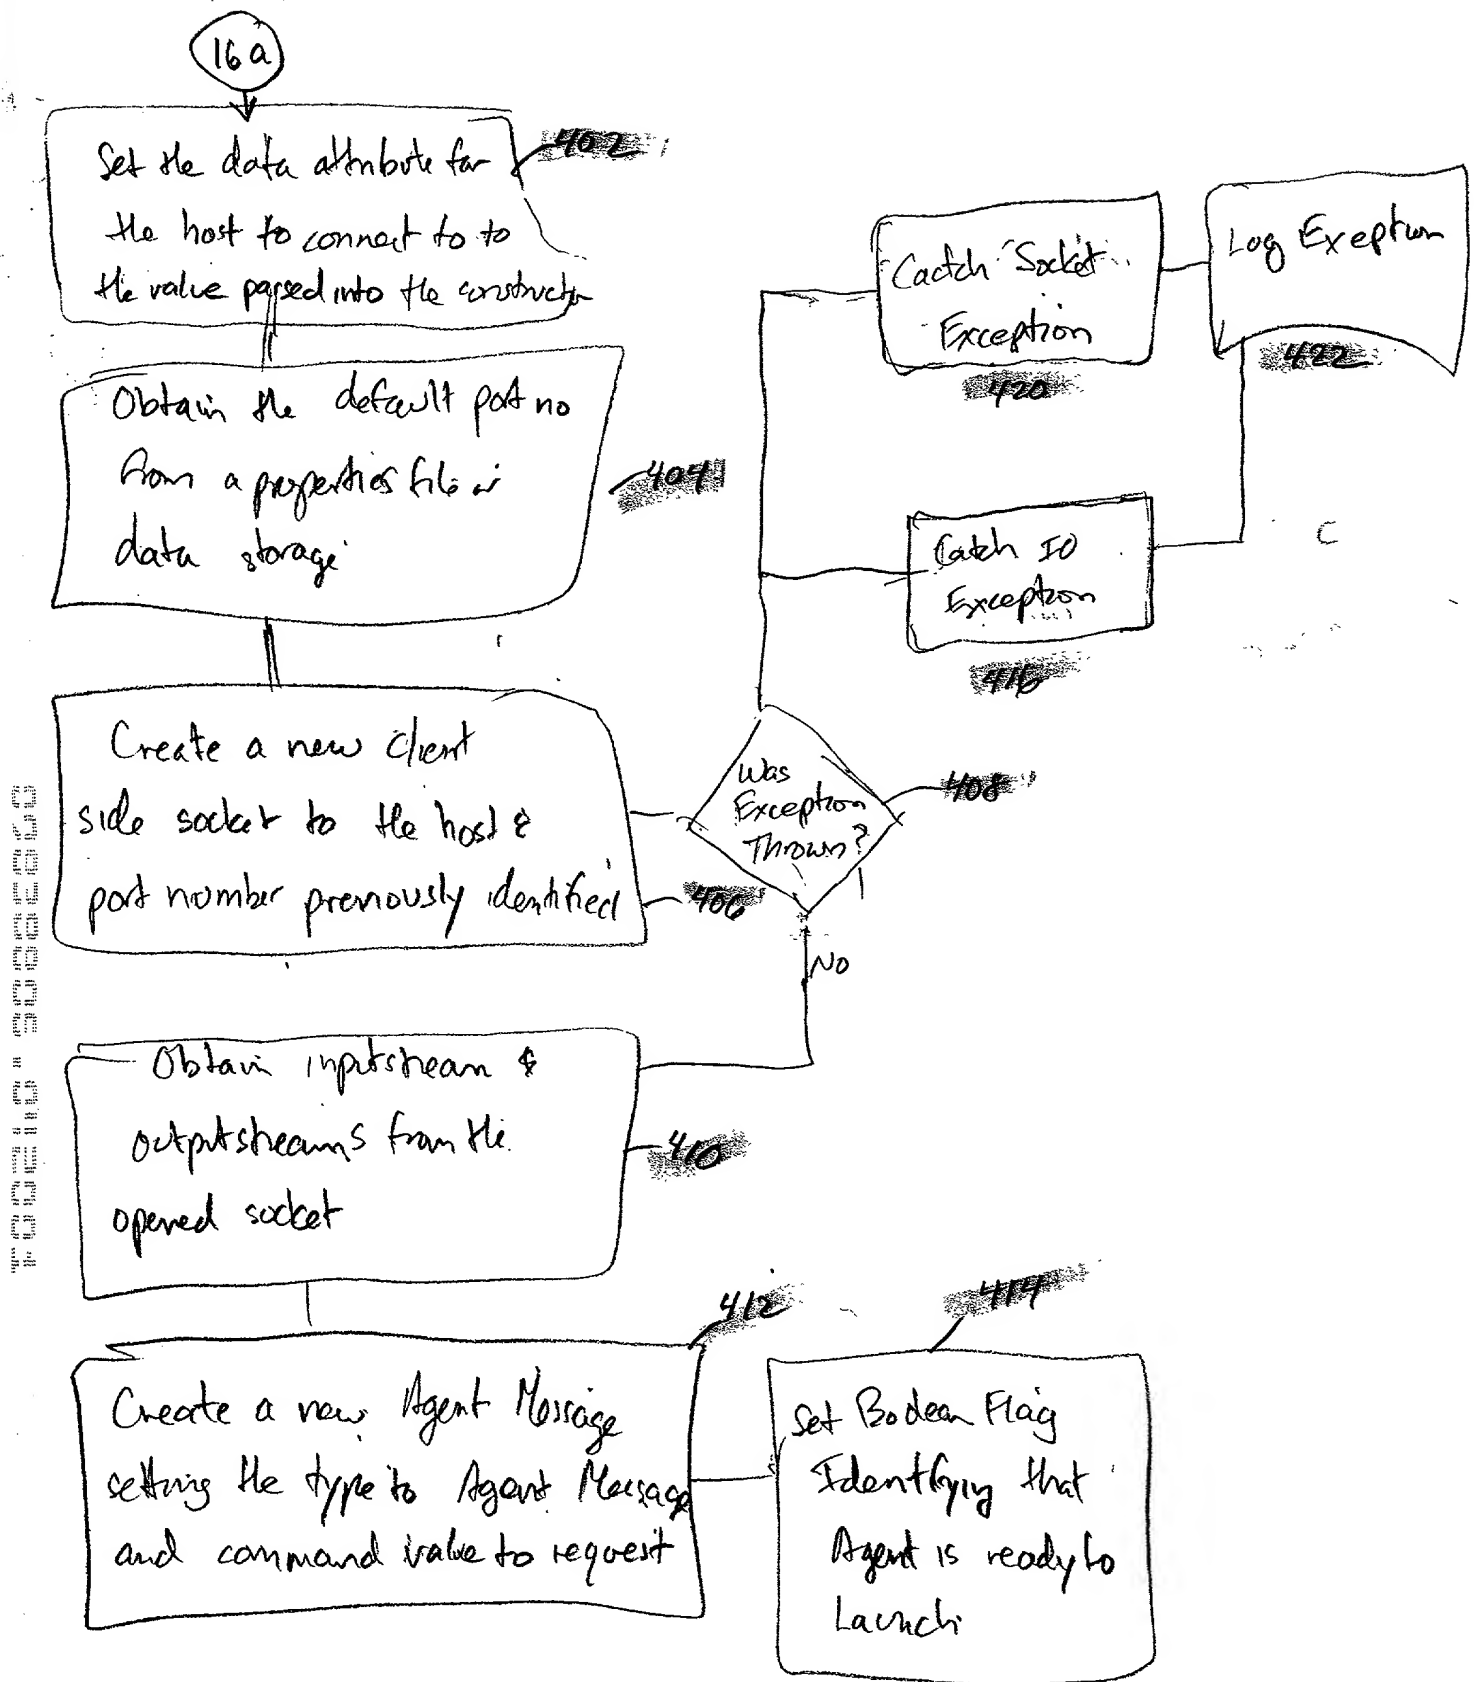 16a
Set the data attribute for
the host to connect to to
the value parsed into the constructor
402
Obtain the default port no
from a properties file or
data storage
404
Create a new client
side socket to the host &
port number previously identified
406
Was
Exception
Thrown?
408
No
Catch Socket
Exception
420
Log Exeption
422
Catch IO
Exception
416
Obtain inputstream &
outputstreams from the
opened socket
410
Create a new Agent Message
setting the type to Agent Message
and command value to request
412
Set Boolean Flag
Identifying that
Agent is ready to
Launch
414